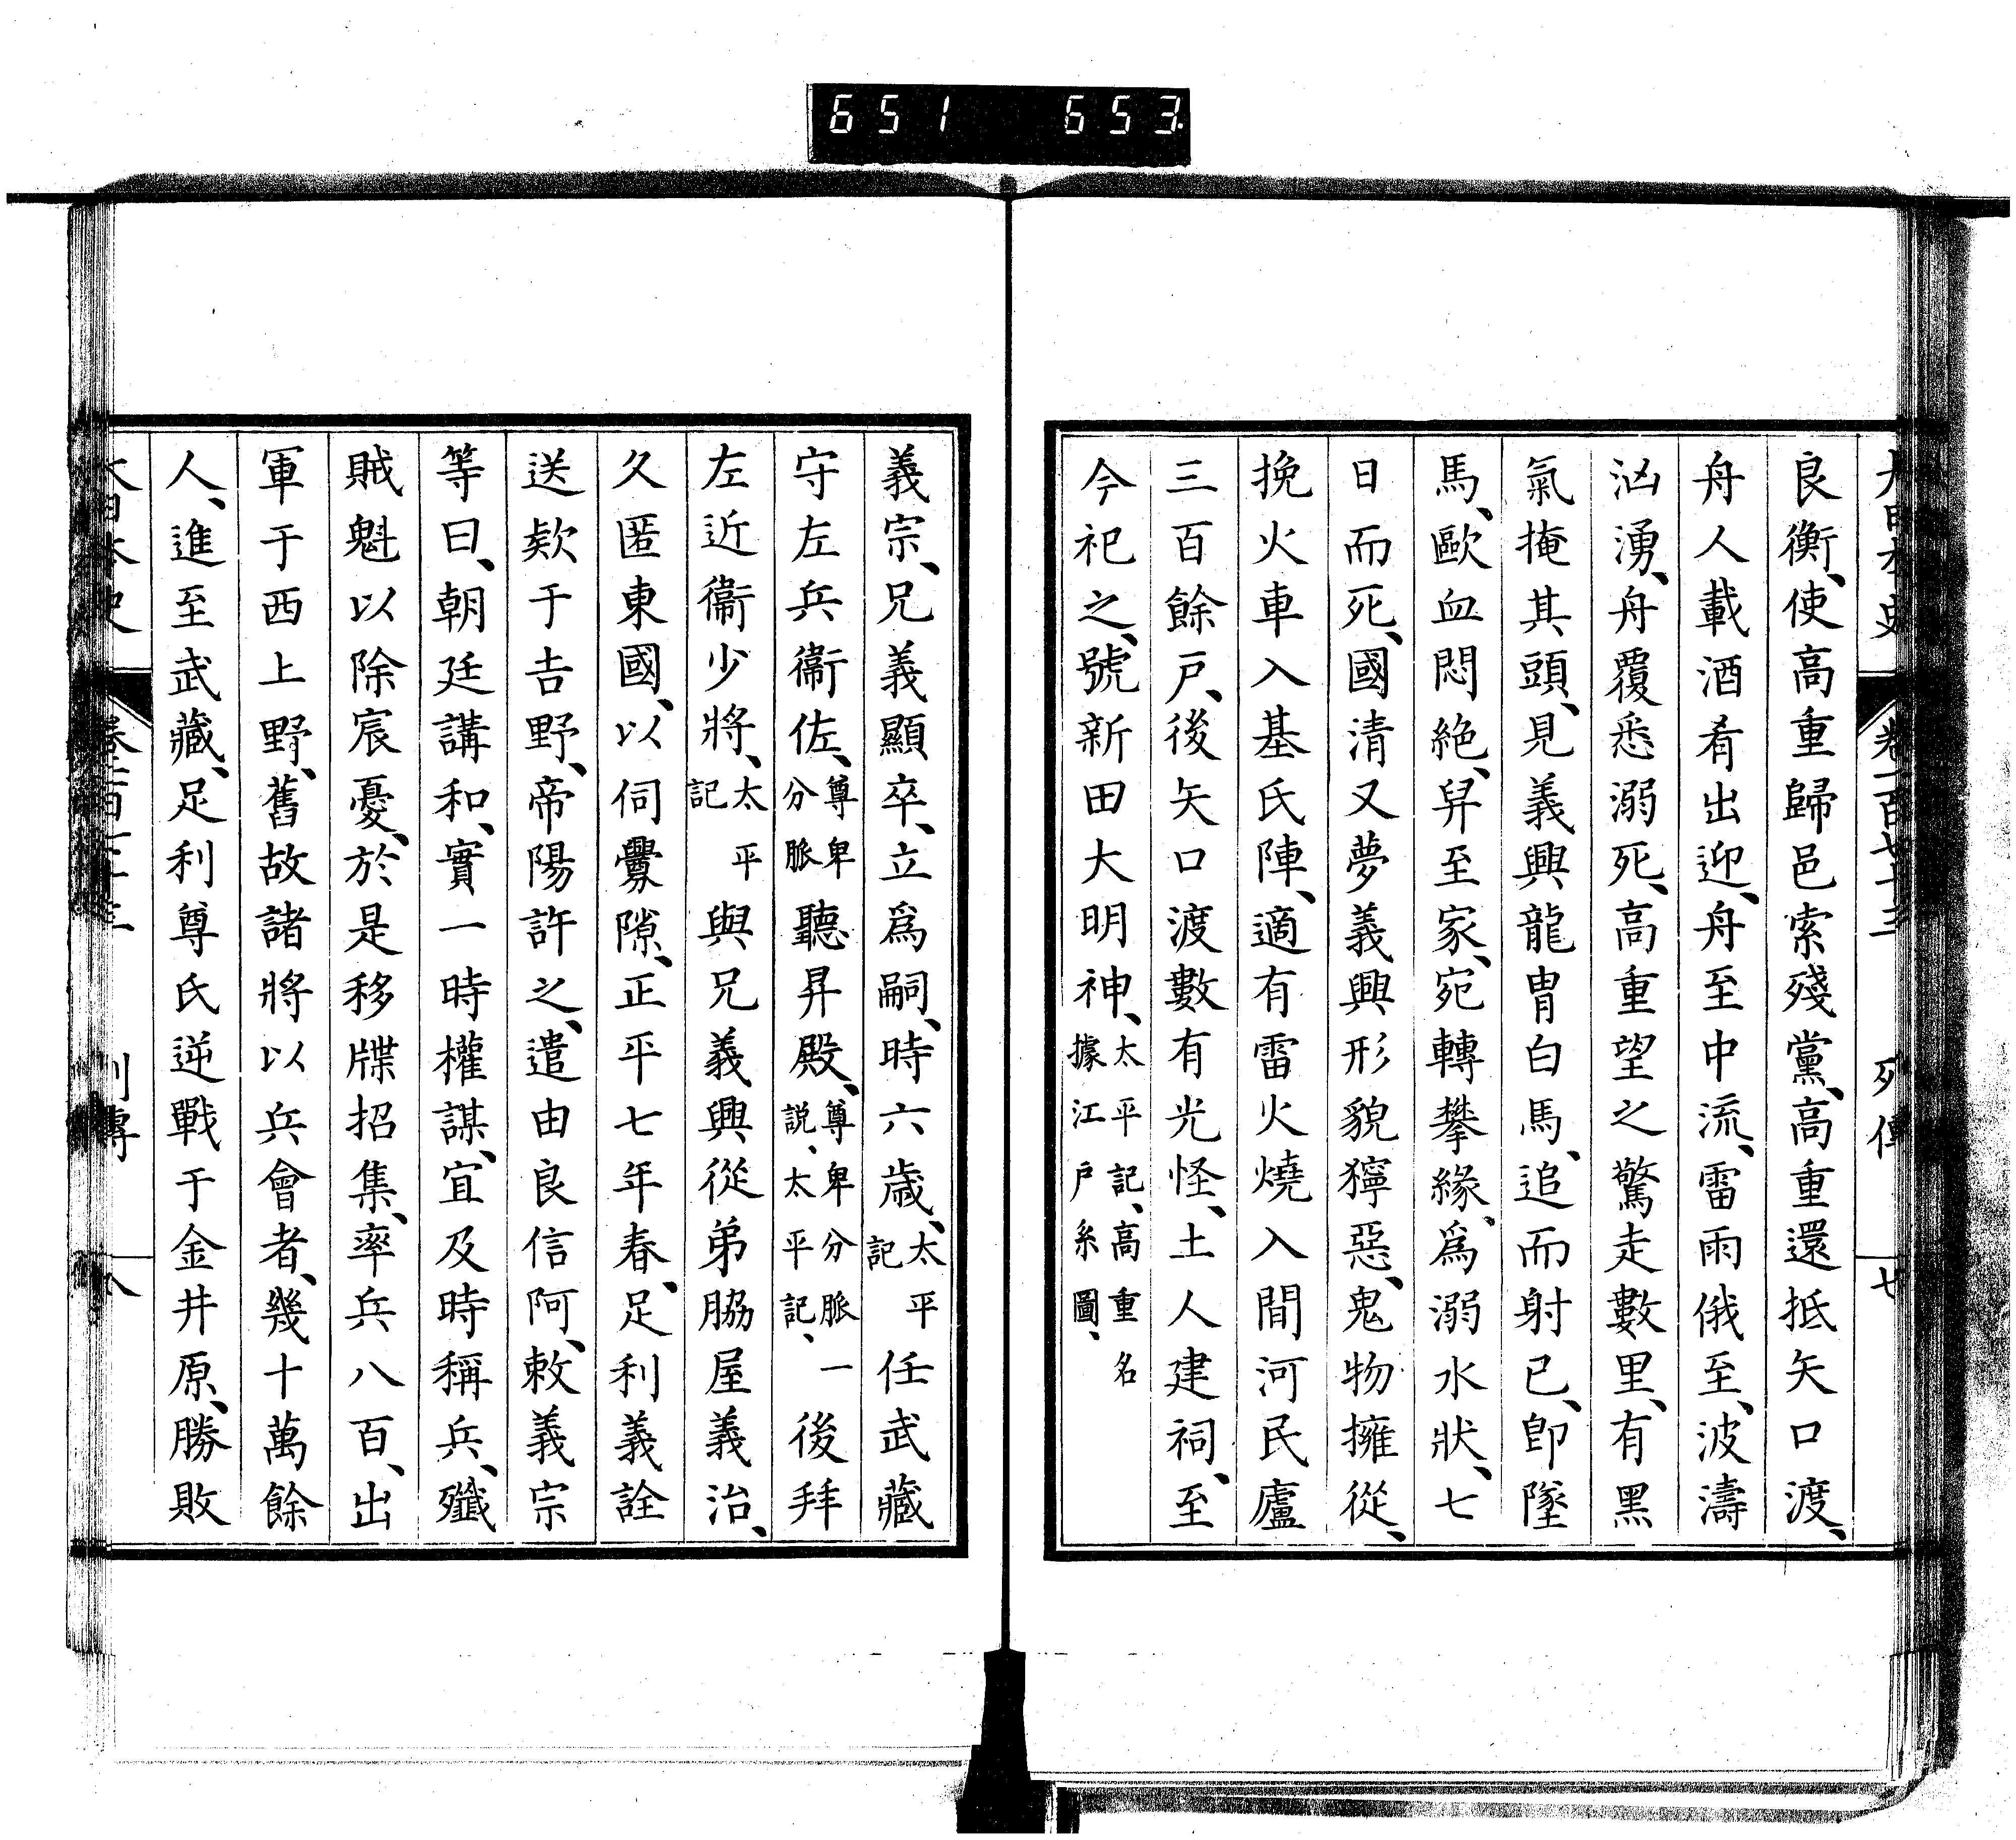 651 653
大日本史 卷一百七十三 列傳 七
良衡、使高重歸邑索殘黨、高重還抵矢口渡、
舟人載酒肴出迎、舟至中流、雷雨俄至、波濤
洶湧、舟覆悉溺死、高重望之驚走數里、有黑
氣掩其頭、見義興龍冑白馬、追而射已、卽墜
馬、歐血悶絶、舁至家、宛轉攀緣、爲溺水狀、七
日而死、國清又夢義興形貌獰惡、鬼物擁從、
挽火車入基氏陣、適有雷火燒入間河民廬
三百餘戶、後矢口渡數有光怪、土人建祠、至
今祀之、號新田大明神、太平記、高重名據江戶系圖、
義宗、兄義顯卒、立爲嗣、時六歲、太平記任武藏
守左兵衞佐、尊卑分脈聽昇殿、尊卑分脈一說、太平記、後拜
左近衞少將、太平記與兄義興從弟脇屋義治、
久匿東國、以伺釁隙、正平七年春、足利義詮
送欵于吉野、帝陽許之、遣由良信阿、敕義宗
等曰、朝廷講和、實一時權謀、宜及時稱兵、殲
賊魁以除宸憂、於是移牒招集、率兵八百、出
軍于西上野、舊故諸將以兵會者、幾十萬餘
人、進至武藏、足利尊氏逆戰于金井原、勝敗
大日本史 列傳 八